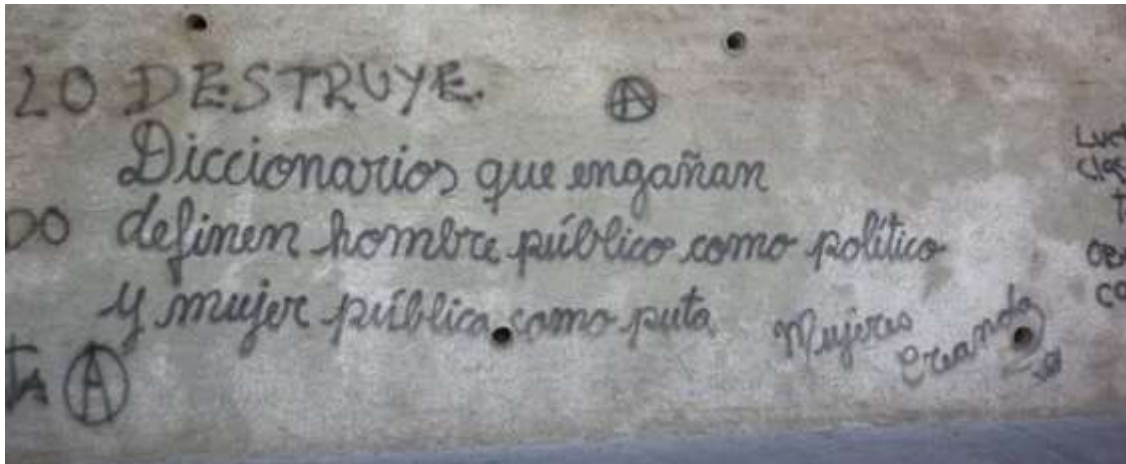 LO DESTRUYE.
Diccionarios que engañan
DO definen hombre público como político
y mujer pública como puta
Mujeres
Creando
TA
CO